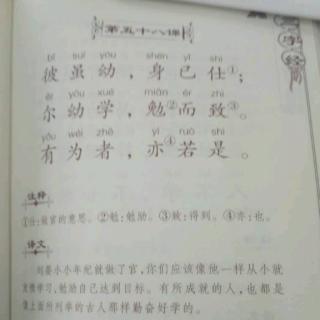 第五十八课
字经
bǐ suī yòu shēn yǐ shì
彼虽幼，身已仕①；
ěr yòu xué miǎn ér zhì
尔幼学，勉②而致③。
yǒu wéi zhě yì ruò shì
有为者，亦④若是。
注释
①仕:做官的意思。②勉:勉励。③致:得到。④亦:也。
译文
刘晏小小年纪就做了官,你们应该像他一样从小就
发愤学习,勉励自己达到目标。有所成就的人,也都是
像上面所列举的古人那样勤奋好学的。